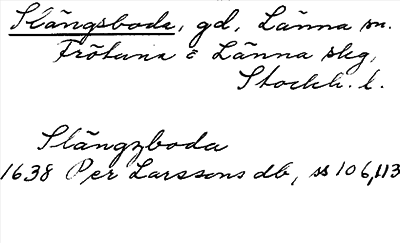 Slängsboda, gd, Länna sn.
Frötuna & Länna skg,
Stockh. l.
Slängzboda
1638 Per Larssons db, ss 106, 113